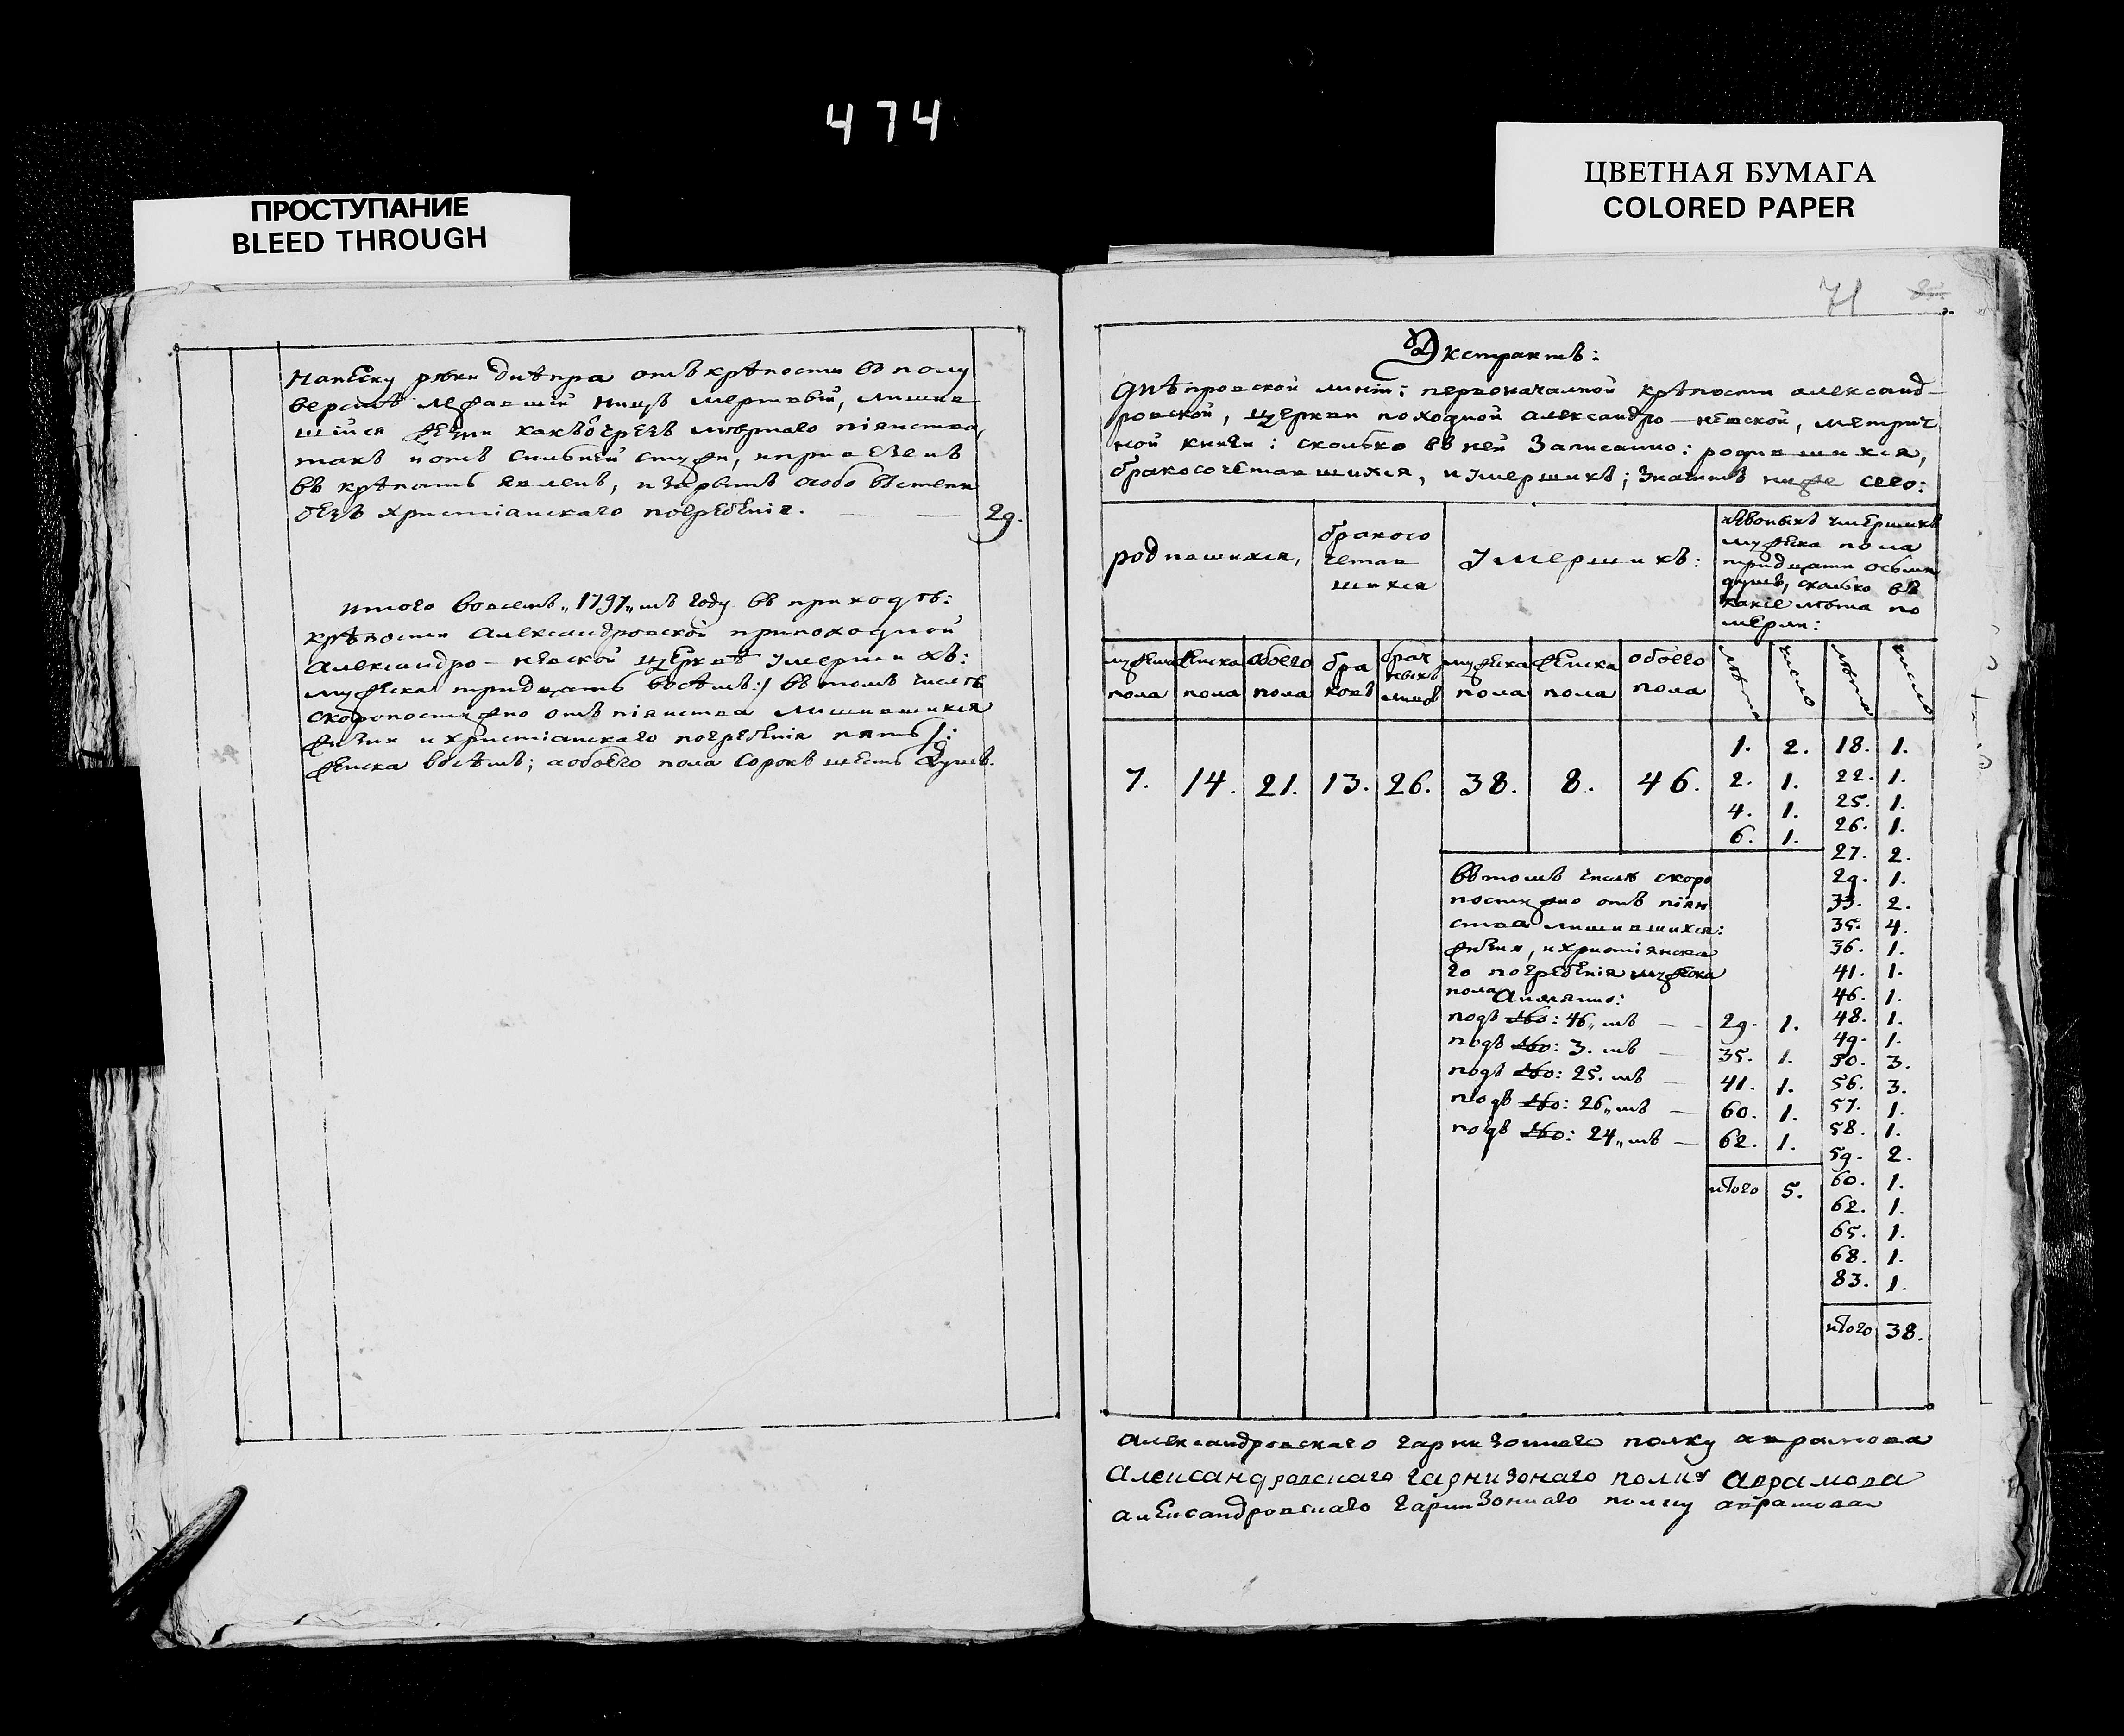 474
ПРОСТУПАНИЕ
BLEED THROUGH
ЦВЕТНАЯ БУМАГА
COLORED PAPER
на пЕску рѣки Днѣпра отъ крѣпости въ полу
верстѣ лежавшій ницъ мертвый, лишив
шійся жизни какъ чрезъ піянства,
такъ и отъ сильней стужи, и привезенъ
въ крѣпость явленъ, и зарытъ особо въ степи
безъ христіанскаго погребенія. — — 29.
итого во всемъ „1797„мъ году въ приходѣ:
крѣпости александровской при походной
александро-невской церквѣ умерши хъ:
мужеска тридцать восѣмъ:/ въ томъ числѣ
скоропостижно отъ піянства лишившихся
жизни и христіанскаго погребенія пять/:
женска восѣмъ; а обоего пола сорокъ шесть душъ.
71
Экстрактъ:
днѣпровской линіи: первоначалной крѣпости александ-
ровской, церкви походной александро-невской, метрич
ной книги: сколько въ ней записанно: родившихся,
бракосочетавшихся, и умершихъ; значитъ ниже сего:
родившихся,
бракосо
четав
шихся
умершихъ:
изъ оныхъ умершихъ
мужеска пола
тридцати осьми
душъ, сколько въ
какіе лѣта по
мерли:
мужеска пола
женска пола
обоего пола
бра ковъ
брач ныхъ лицъ
мужеска пола
женска пола
обоего пола
лѣта
число
лѣта
число
7. 14. 21. 13. 26. 38. 8. 46.
1. 2. 18. 1.
2. 1. 22. 1.
4. 1. 25. 1.
6. 1. 26. 1.
27. 2.
въ томъ числѣ скоро 29. 1.
постижно отъ піян 33. 2.
ства лишившихся: 35. 4.
жизни, и христіянска 36. 1.
го погребенія мужеска 41. 1.
пола а имянно: 46. 1.
подъ №: 46„мъ — 29. 1. 48. 1.
49. 1.
подъ №: 3.мъ — 35. 1. 50. 3.
подъ №: 25.мъ — 41. 1. 56. 3.
подъ №: 26„мъ — 60. 1. 57. 1.
подъ №: 24„мъ — 62. 1. 58. 1.
59. 2.
итого 5. 60. 1.
62. 1.
65. 1.
68. 1.
83. 1.
итого 38.
александровскаго гарнизоннаго полку аврамова
александровскаго гарнизонаго полку аврамова
александровскаго гарнизоннаго полку аврамова